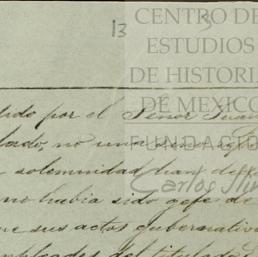 13
CENTRO DE
ESTUDIOS
DE HISTORIA
DE MEXICO
FUNDACIÓN
Carlos Slim
dido por el Señor Juan
no una
solemnidad han
no habia sido gefe de
ue sus actos gubernativ
mpleados del titulado